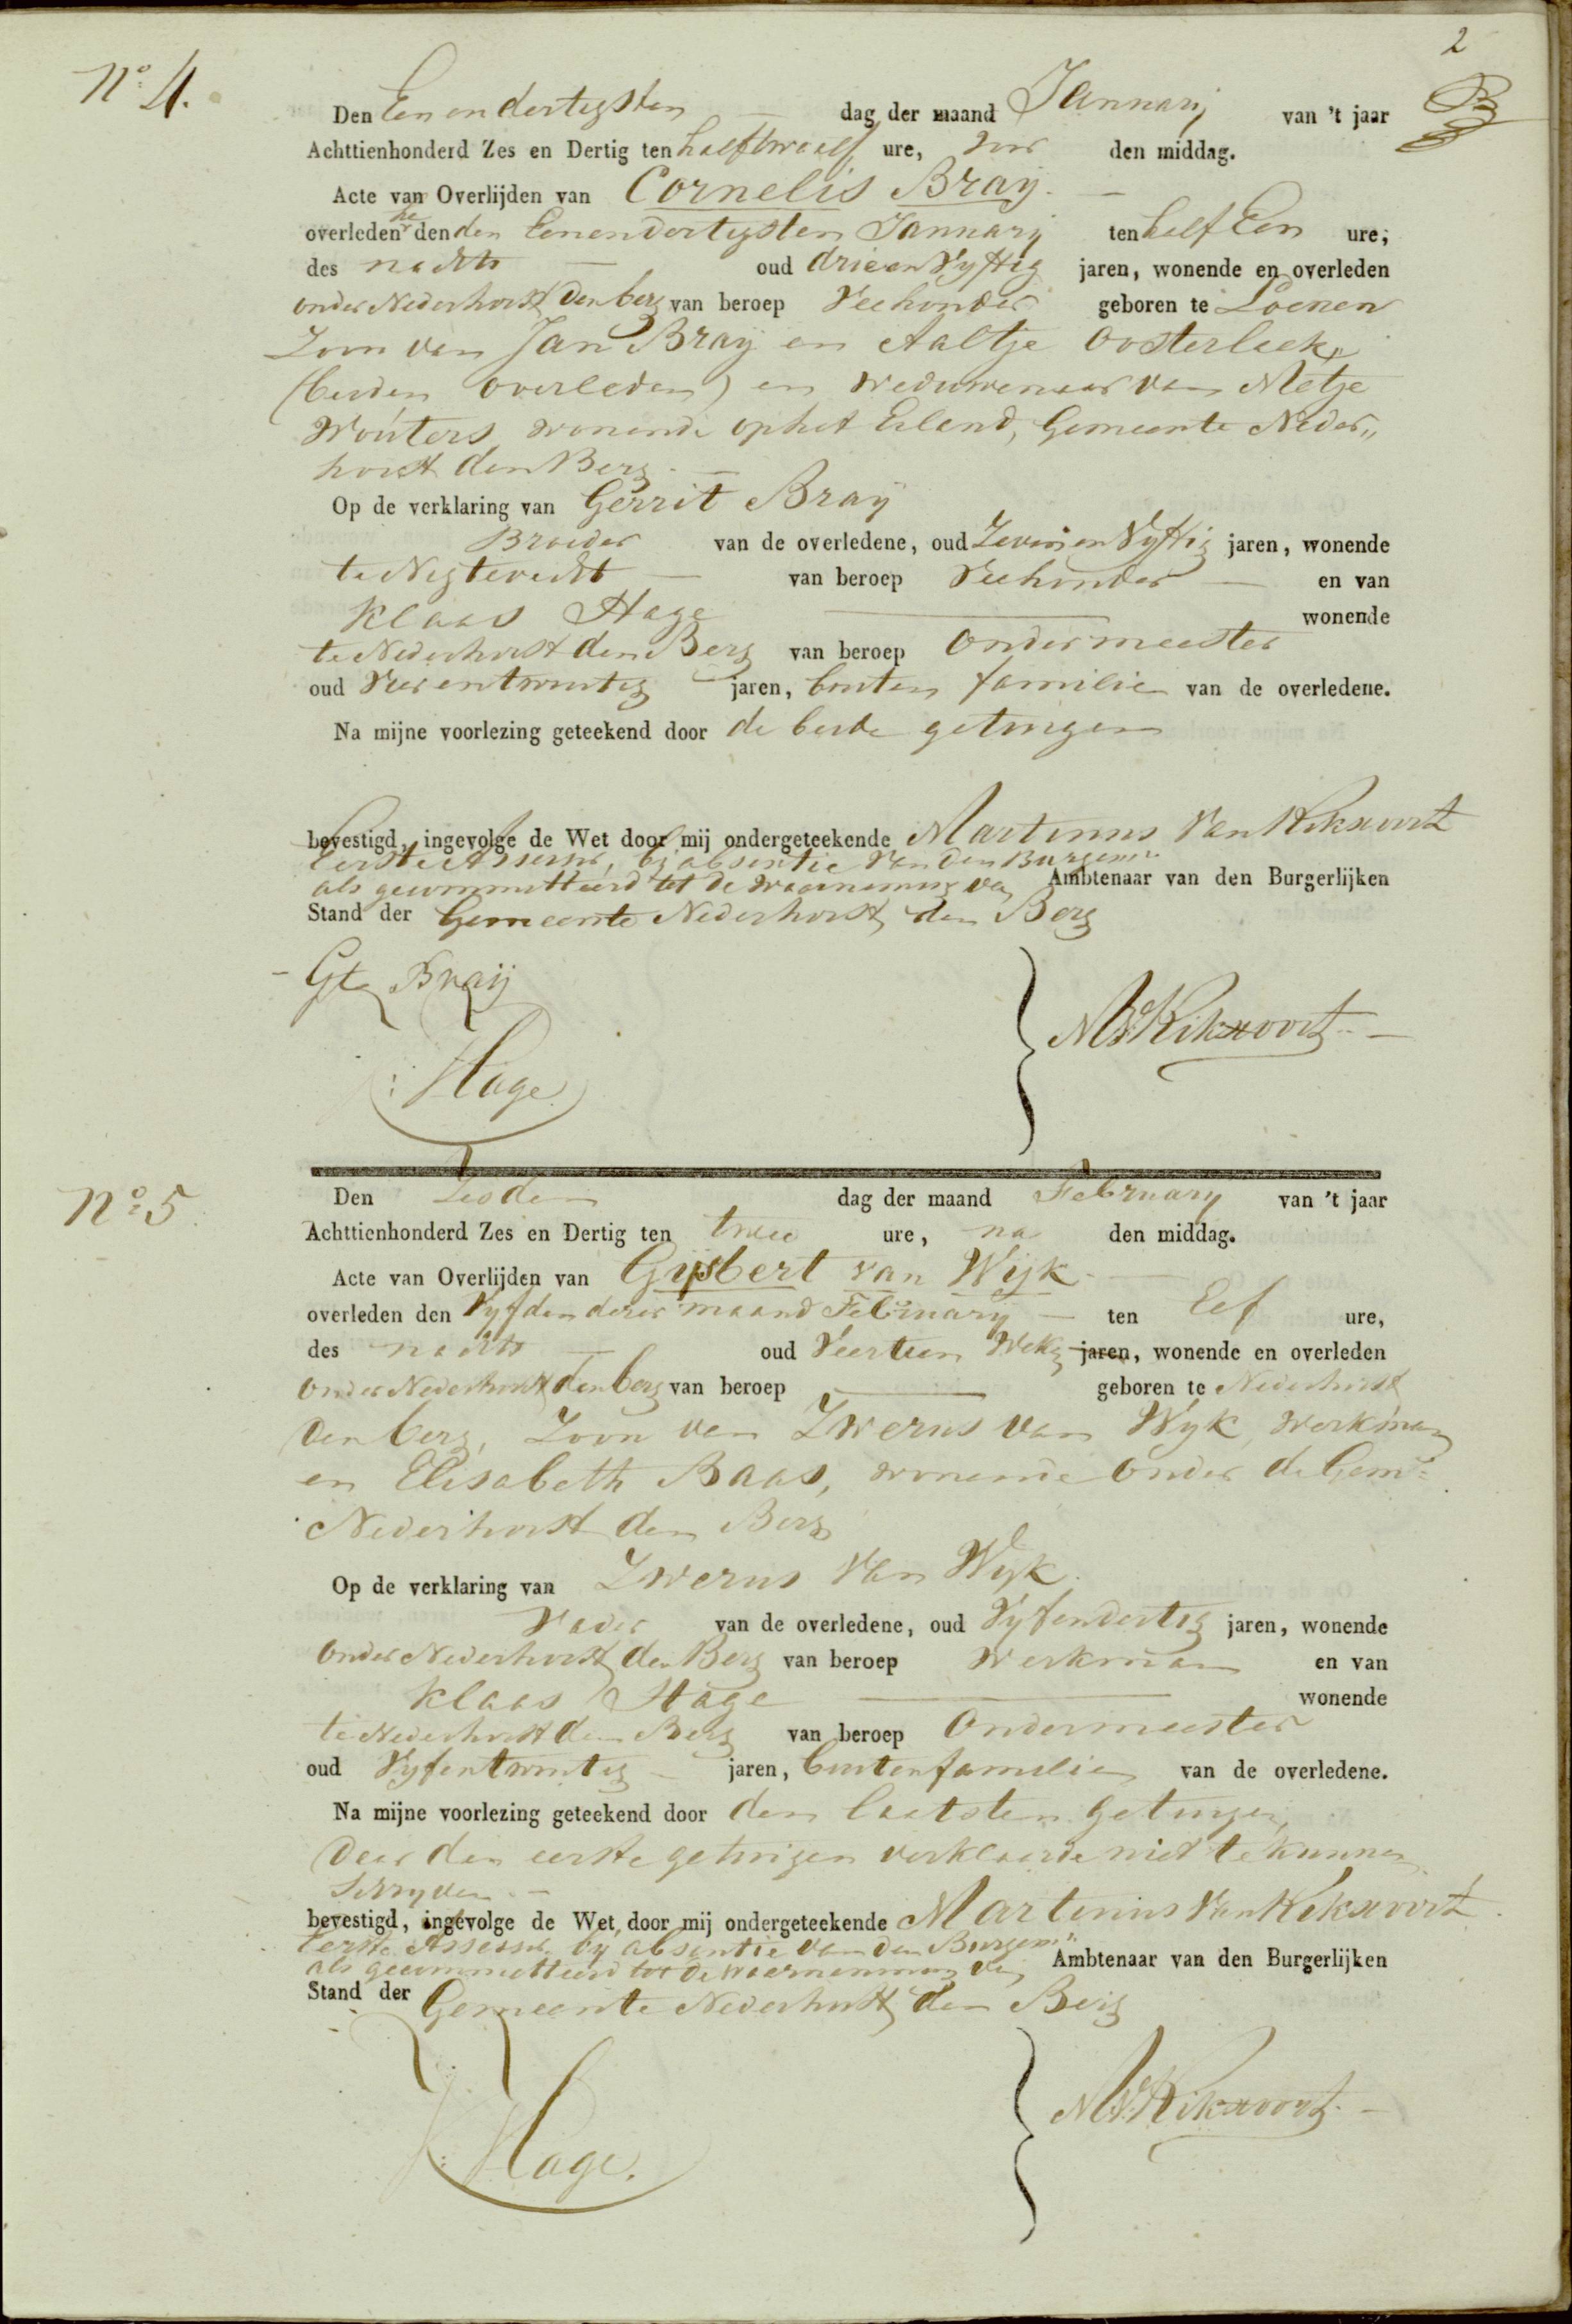 2
No 4.
Den Een en dertigsten dag der maand Januarij van 't jaar
Achttienhonderd Zes en Dertig ten half twaalf ure, voor den middag.
Acte van Overlijden van Cornelis Braij.
overleden den den Eenendertigsten Januarij ten half Een ure;
des nachts oud drieenvyftig jaren, wonende en overleden
onder Nederhorst den berg van beroep Veehouder geboren te Loenen
Zoon van Jan Braij en Aaltje Oosterlaek,
(beiden overleden) en weduwenaar van Metje
Wouters wonende op het Eiland, Gemeente Neder„
horst den Berg.
Op de verklaring van Gerrit Braij
Broeder van de overledene, oud Zevenen Vyftig jaren, wonende
te Nigtevecht van beroep Veehouder en van
Klaas Hage wonende
te Nederhorst den Berg van beroep Ondermeester
oud Vier en twintig jaren, buiten familie van de overledene.
Na mijne voorlezing geteekend door de beide getuigen
bevestigd, ingevolge de Wet door mij ondergeteekende Martinus van Kikxvoort
Eerste Assessor, bij absentie van den Burgemr.
als gecommitteerd tot de waarneming van Ambtenaar van den Burgerlijken
Stand der Gemeente Nederhorst den Berg
Gt Braij
MVKikxvoort
Hage
No 5.
Den Zesden dag der maand February van 't jaar
Achttienhonderd Zes en Dertig ten twee ure, na den middag.
Acte van Overlijden van Gijsbert van Wijk
overleden den Vyfden dezer maand Februarij ten Elf ure,
des nachts oud Veertien Weken jaren, wonende en overleden
onder Nederhorst den berg van beroep geboren te Nederhorst
den berg, Zoon van Zwerus van Wyk, werkman
en Elisabeth Baas, wonende onder de Geme
Nederhorst den Berg
Op de verklaring van Zwerus van Wyk.
Vader van de overledene, oud Vyfendertig jaren, wonende
onder Nederhorst den Berg van beroep Werkman en van
Klaas Hage wonende
te Nederhorst den Berg van beroep Ondermeester
oud Vyfentwintig jaren, buiten familie van de overledene.
Na mijne voorlezing geteekend door den laatsten getuigen,
daar den eerste getuigen verklaarde niet te kunnen
Schryven.
bevestigd, ingevolge de Wet, door mij ondergeteekende Martinus van Kikxvoort
Eerste Assessor bij absentie van den Burgemr.
als gecommitteerd tot de waarneming van Ambtenaar van den Burgerlijken
Stand der Gemeente Nederhorst den Berg
MVKikxvoort
Hage.